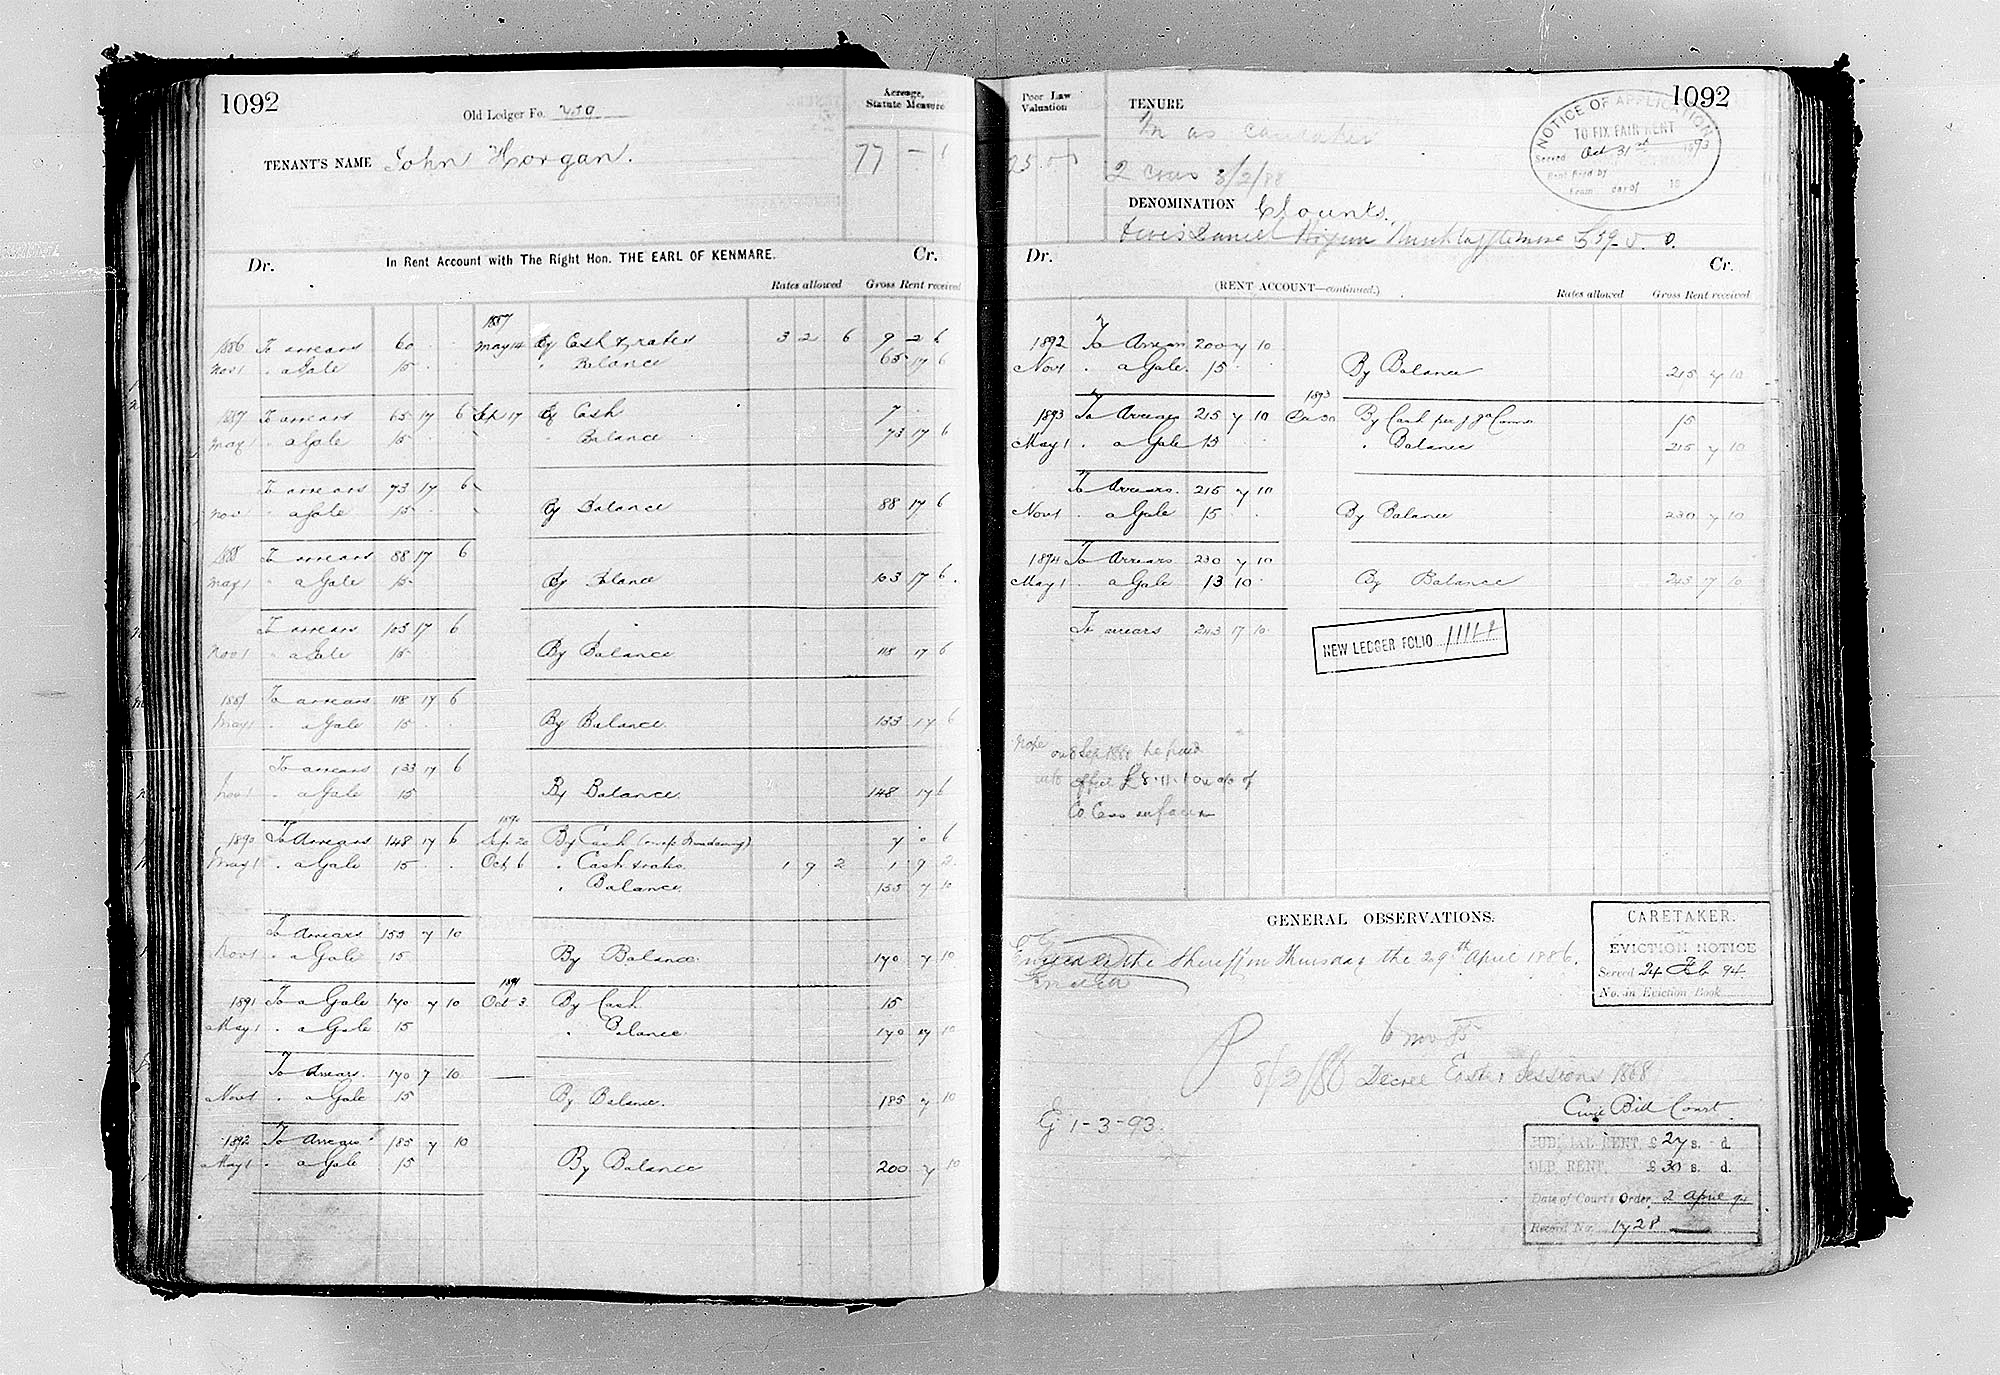 1092
Old Ledger Fo.
Acreage, Statute Measure
TENANT'S NAME John Horgan.
77 - 1
In Rent Account with The Right Hon. THE EARL OF KENMARE.
Dr. Cr.
Rates allowed Gross Rent received
1887
1886 To arrears 60 . . May 14 By Cash & rates 3 2 6 9 2 6
Nov 1 " a Gale 15 . . " Balance 65 17 6
1887 To arrears 65 17 6 Sep 17 By Cash 7 . .
May 1 " a Gale 15 . . " Balance 73 17 6
To arrears 73 17 6
Nov " a Gale 15 . . By Balance 88 17 6
1888 To arrears 88 17 6
May 1 " a Gale 15 By Balance 103 17 6
To arrears 103 17 6
Nov 1 " a Gale 15 By Balance 118 17 6
1889 To arrears 118 17 6
May 1 " a Gale 15 . . By Balance 133 17 6
To arrears 133 17 6
Nov 1 " a Gale 15 By Balance 148 17 6
1890
1890 To Arrears 148 17 6 Sep 20 By Cash 7 0 6
May 1 " a Gale 15 . . Oct 6 " Cash & rates 1 9 2 1 9 2
" Balance 155 7 10
To Arrears 155 7 10
Nov 1 " a Gale 15 By Balance 170 7 10
1891
1891 To a Gale 170 7 10 Oct 3 By Cash 15
May 1 " a Gale 15 " Balance 170 7 10
To Arrears 170 7 10
Nov 1 " a Gale 15 By Balance. 185 7 10
1892 To Arrears 185 7 10
May 1 " a Gale 15 By Balance 200 7 10
Poor Law Valuation
TENURE
1092
In as caretaker
2 cows 3/2/88
NOTICE OF APPLICATION
TO FIX FAIR RENT
Served Oct 31st 1893
Rent fixed by
from day of 18
DENOMINATION Clounts.
Daniel Horgan £59 - 0. 0.
Dr. Cr.
(RENT ACCOUNT—continued.)
Rates allowed Gross Rent received
1892 To Arrears 200 7 10
Nov 1 " a Gale 15 . . By Balance 215 7 10
1893
1893 To Arrears 215 7 10 By Cash per 15
May 1 " a Gale 15 " Balance 215 7 10
To Arrears. 215 7 10
Nov 1 " a Gale 15 . . By Balance 230 7 10
1894 To Arrears 230 7 10
May 1 " a Gale 13 10 . By Balance 243 17 10
To arrears 243 17 10
NEW LEDGER FOLIO
Note on Sep 1888 he paid
into office £8.11.1 on a/c of
Co Cess
GENERAL OBSERVATIONS.
the Sheriff on Thursday the 29th April 1886.
CARETAKER.
EVICTION NOTICE
Served 24 Feb 94
No. in Eviction Book
6 Nov 85
Decree Easter Sessions 1868
Civil Bill Court
1-3-93.
JUDICIAL RENT, £ 27 s. - d.
OLD RENT, £ 30 s. d.
Date of Court's Order, 2 April 94
Record No. 1728